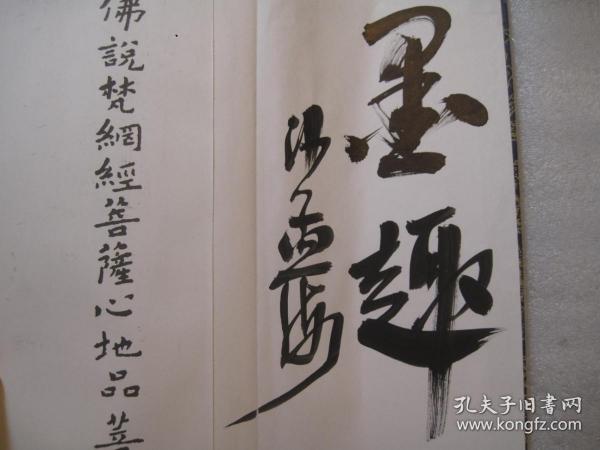 墨趣
佛說梵網經菩薩心地品菩
孔夫子旧书网
www.kongfz.com